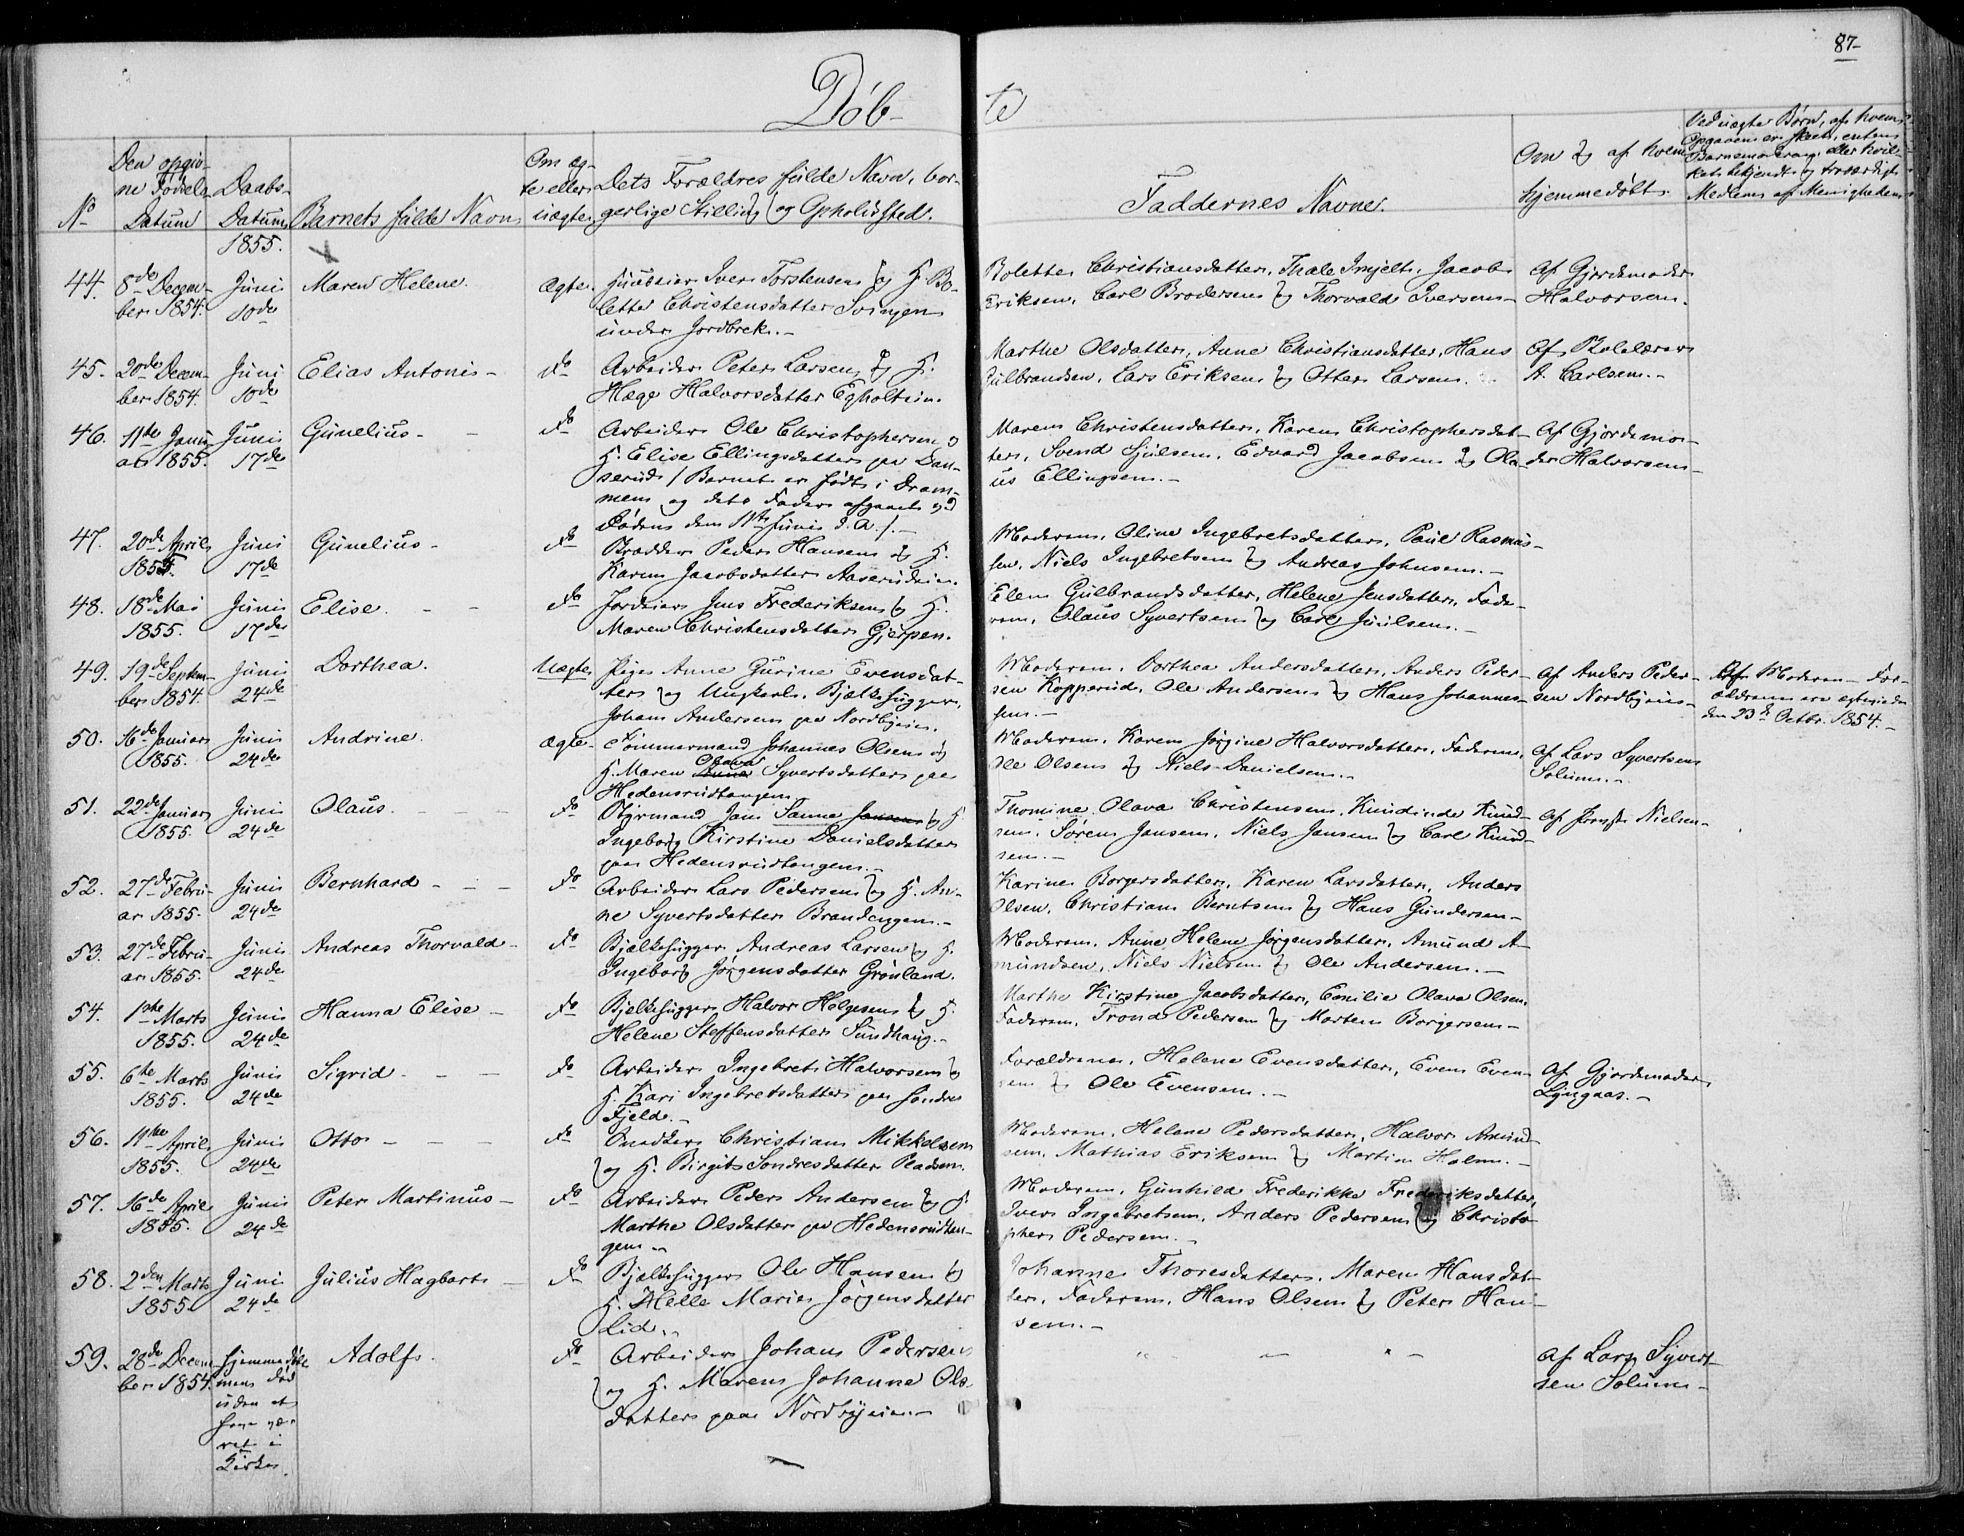 87-
Døb- te
No
Den opgiv-
ne Fødsels
Datum
Daabs-
Datum
1855.
Barnets fulde Navn
Om æg-
te eller
uægte
Dets Forældres fulde Navn, bor-
gerlige Stilling og Opholdsted.
Faddernes Navne.
Om og af hvem
hjemmedøbt.
Ved uægte Børn, af hvem
Opgaven er skeet, enten
Barnemoderen eller hvil-
Medlem af Menigheden
44. 8de Decem-
ber 1854.
Juni
10de
Maren Helene.
Ægte.
Huuseier Iver Torstensen og H. Bo-
lette Christensdatter Svingen
under Jordbrek.-
Bolette Christiansdatter, Thale Injelt, Jacob
Eriksen, Carl Brodersen og Thorvald Iversen-
Af Gjordemoder
Halvorsen.
45. 20de Decem-
ber 1854.
Juni
10de
Elias Antonis-
do
Arbeider Peter Larsen og H.
Hæge Halvorsdatter Egholtein.
Marthe Olsdatter, Anne Christiansdatter, Hans
Gulbrandsen, Lars Eriksen og Otter Larsen.
Af Skolelærer
A. Carlsen.-
46. 11te Janu-
ar 1855.
Juni
17de
Gunelius-
do
Arbeider Ole Christophersen o
H. Elise Ellingsdatter paa Dan-
serud / Barnet er født i Dram-
men og dets Fader afgaaet ved
Døden den 11te Juni d. A./.-
Maren Christensdatter, Karen Christophersdat-
ter, Svend Sjulsen, Edvard Jacobsen og Ola-
us Ellingsen.-
Af Gjordemo-
der Halvorsen-
47. 20de April
1855.
Juni
17de
Gunelius-
do
Brædder Peder Hansen og H.
Karen Jacobsdatter Aaserudeie.
Moderen, Oline Ingebretsdatter, Paul Rasmus-
sen, Niels Ingebretsen og Andreas Johnsen.-
48. 18de Mai
1855.
Juni
17de
Elise.
do
Jordeier Jens Frederiksen og H.
Maren Christensdatter Gjerpen.
Elen Gulbrandsdatter, Helene Jensdatter, Fade-
ren, Olaus Syvertsen og Carl Juulsen.-
49. 19de Septem-
ber 1854.
Juni
24de
Dorthea.
Uægte
Pige Anne Gurine Evensdat-
ter og Ungkarl, Bjælkehugger,
Johan Andersen paa Nordbyeie.
Moderen, Dorthea Andersdatter, Anders Peder-
sen Kopperud, Ole Andersen og Hans Johannes-
sen.-
Af Anders Peder-
sen Nordbyeie-
Af Moderen- For-
ældrene ere egteviede
den 23de Octbr. 1854.-
50. 16de Januar
1855.
Juni
24de
Andrine.
ægte-
Tømmermand Johannes Olsen og
H. Maren Olava Syvertsdatter paa
Hedensrudtangen.
Moderen, Karen Jørgine Halvorsdatter, Faderen,
Ole Olsen og Niels Danielsen.-
Af Lars Syvertsen
Solum.-
51. 22de Januar
1855.
Juni
24de
Olaus.
do
Styrmand Jans Sanne Jansen og H
Ingeborg Kirstine Danielsdatter
paa Hedensrudtangen.-
Thomine Olava Christensen, Knudinde Knud-
sen, Søren Jensen, Niels Jansen og Carl Knud-
sen.-
Af Nielsen-
52. 27de Febru-
ar 1855.
Juni
24de
Bernhard
do
Arbeider Lars Pedersen og H. An-
ne Syvertsdatter Brandengen.-
Karine Borgersdatter, Karen Larsdatter, Anders
Olsen, Christian Berntsen og Hans Gundersen-
53. 27de Febru-
ar 1855.
Juni
24de
Andreas Thorvald-
do
Bjælkehugger Andreas Larsen og H.
Ingeborg Jørgensdatter Grønland.
Moderen, Anne Helene Jørgensdatter, Amund A-
mundsen, Niels Nielsen og Ole Andersen.-
54. 1ste Marts
1855.
Juni
24de
Hanna Elise-
do
Bjelkehugger Halvor Helgesen og H.
Helene Steffensdatter Sundhaug.-
Marthe Kirstine Jacobsdatter, Emilie Olava Olsen,
Faderen, Trond Pedersen og Morten Borgersen-
55. 6te Marts
1855.
Juni
24de
Sigrid-
do
Arbeider Ingebret Halvorsen og
H. Kari Ingebretsdatter paa søndre
Fjelde.-
Forældrene, Helene Evensdatter, Even Even-
sen og Ole Evensen.-
Af Gjordemoder
Lyngaas.-
56. 11te April
1855.
Juni
24de
Otto
do
Snedker Christian Mikkelsen
og H. Birgit Sondresdatter Pladsen.
Moderen, Helene Pedersdatter, Halvor Amund-
sen, Mathias Eriksen og Martin Holm.-
57. 16de April
1855.
Juni
24de
Peter Martinus-
do
Arbeider Peder Andersen og H
Marthe Olsdatter paa Hedensrudtan-
gen.-
Moderen, Gunhild Frederikke Frederiksdatter,
Iver Ingebretsen, Anders Pedersen og Christo-
pher Pedersen.-
58. 2den Marts
1855
Juni
24de
Julius Hagbart-
do
Bjælkehugger Ole Hansen og
H. Helle Marie Jørgensdatter
Lid.-
Johanne Thoresdatter, Maren Hansdat-
ter, Faderen, Hans Olsen og Peter Han-
sen.-
59. 28de Decem-
ber 1854.
hjemmedøbt
men død
uden at
have væ-
ret i
Kirke.
Adolf.
do
Arbeider Johan Pedersen
og H. Maren Johanne Ols-
datter paa Nordbyeie.-
Af Lars Syvert-
sen Solum-